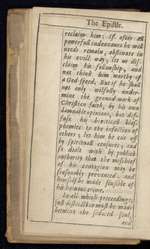 The Epistle.
reclaim him; If after all
powerfull endeavours he will
needs remain, obstinate in
his evill way; let us dis-
claim his fellowship, and
not think him worthy of
a God-speed. But if he shall
not only wilfully under-
mine the ground-work of
Christian faith, by his own
damnable opinions, but dif-
fuse his hereticall blas-
phemies to the infection of
others; let him be cut off
by spirituall censures; and
so dealt with by publick
authority that the mischief
of his contagion may be
seasonably prevented, and
himself be made sensible of
his
In all which proceedings
just distinction must be made
between the seduced soul,
and